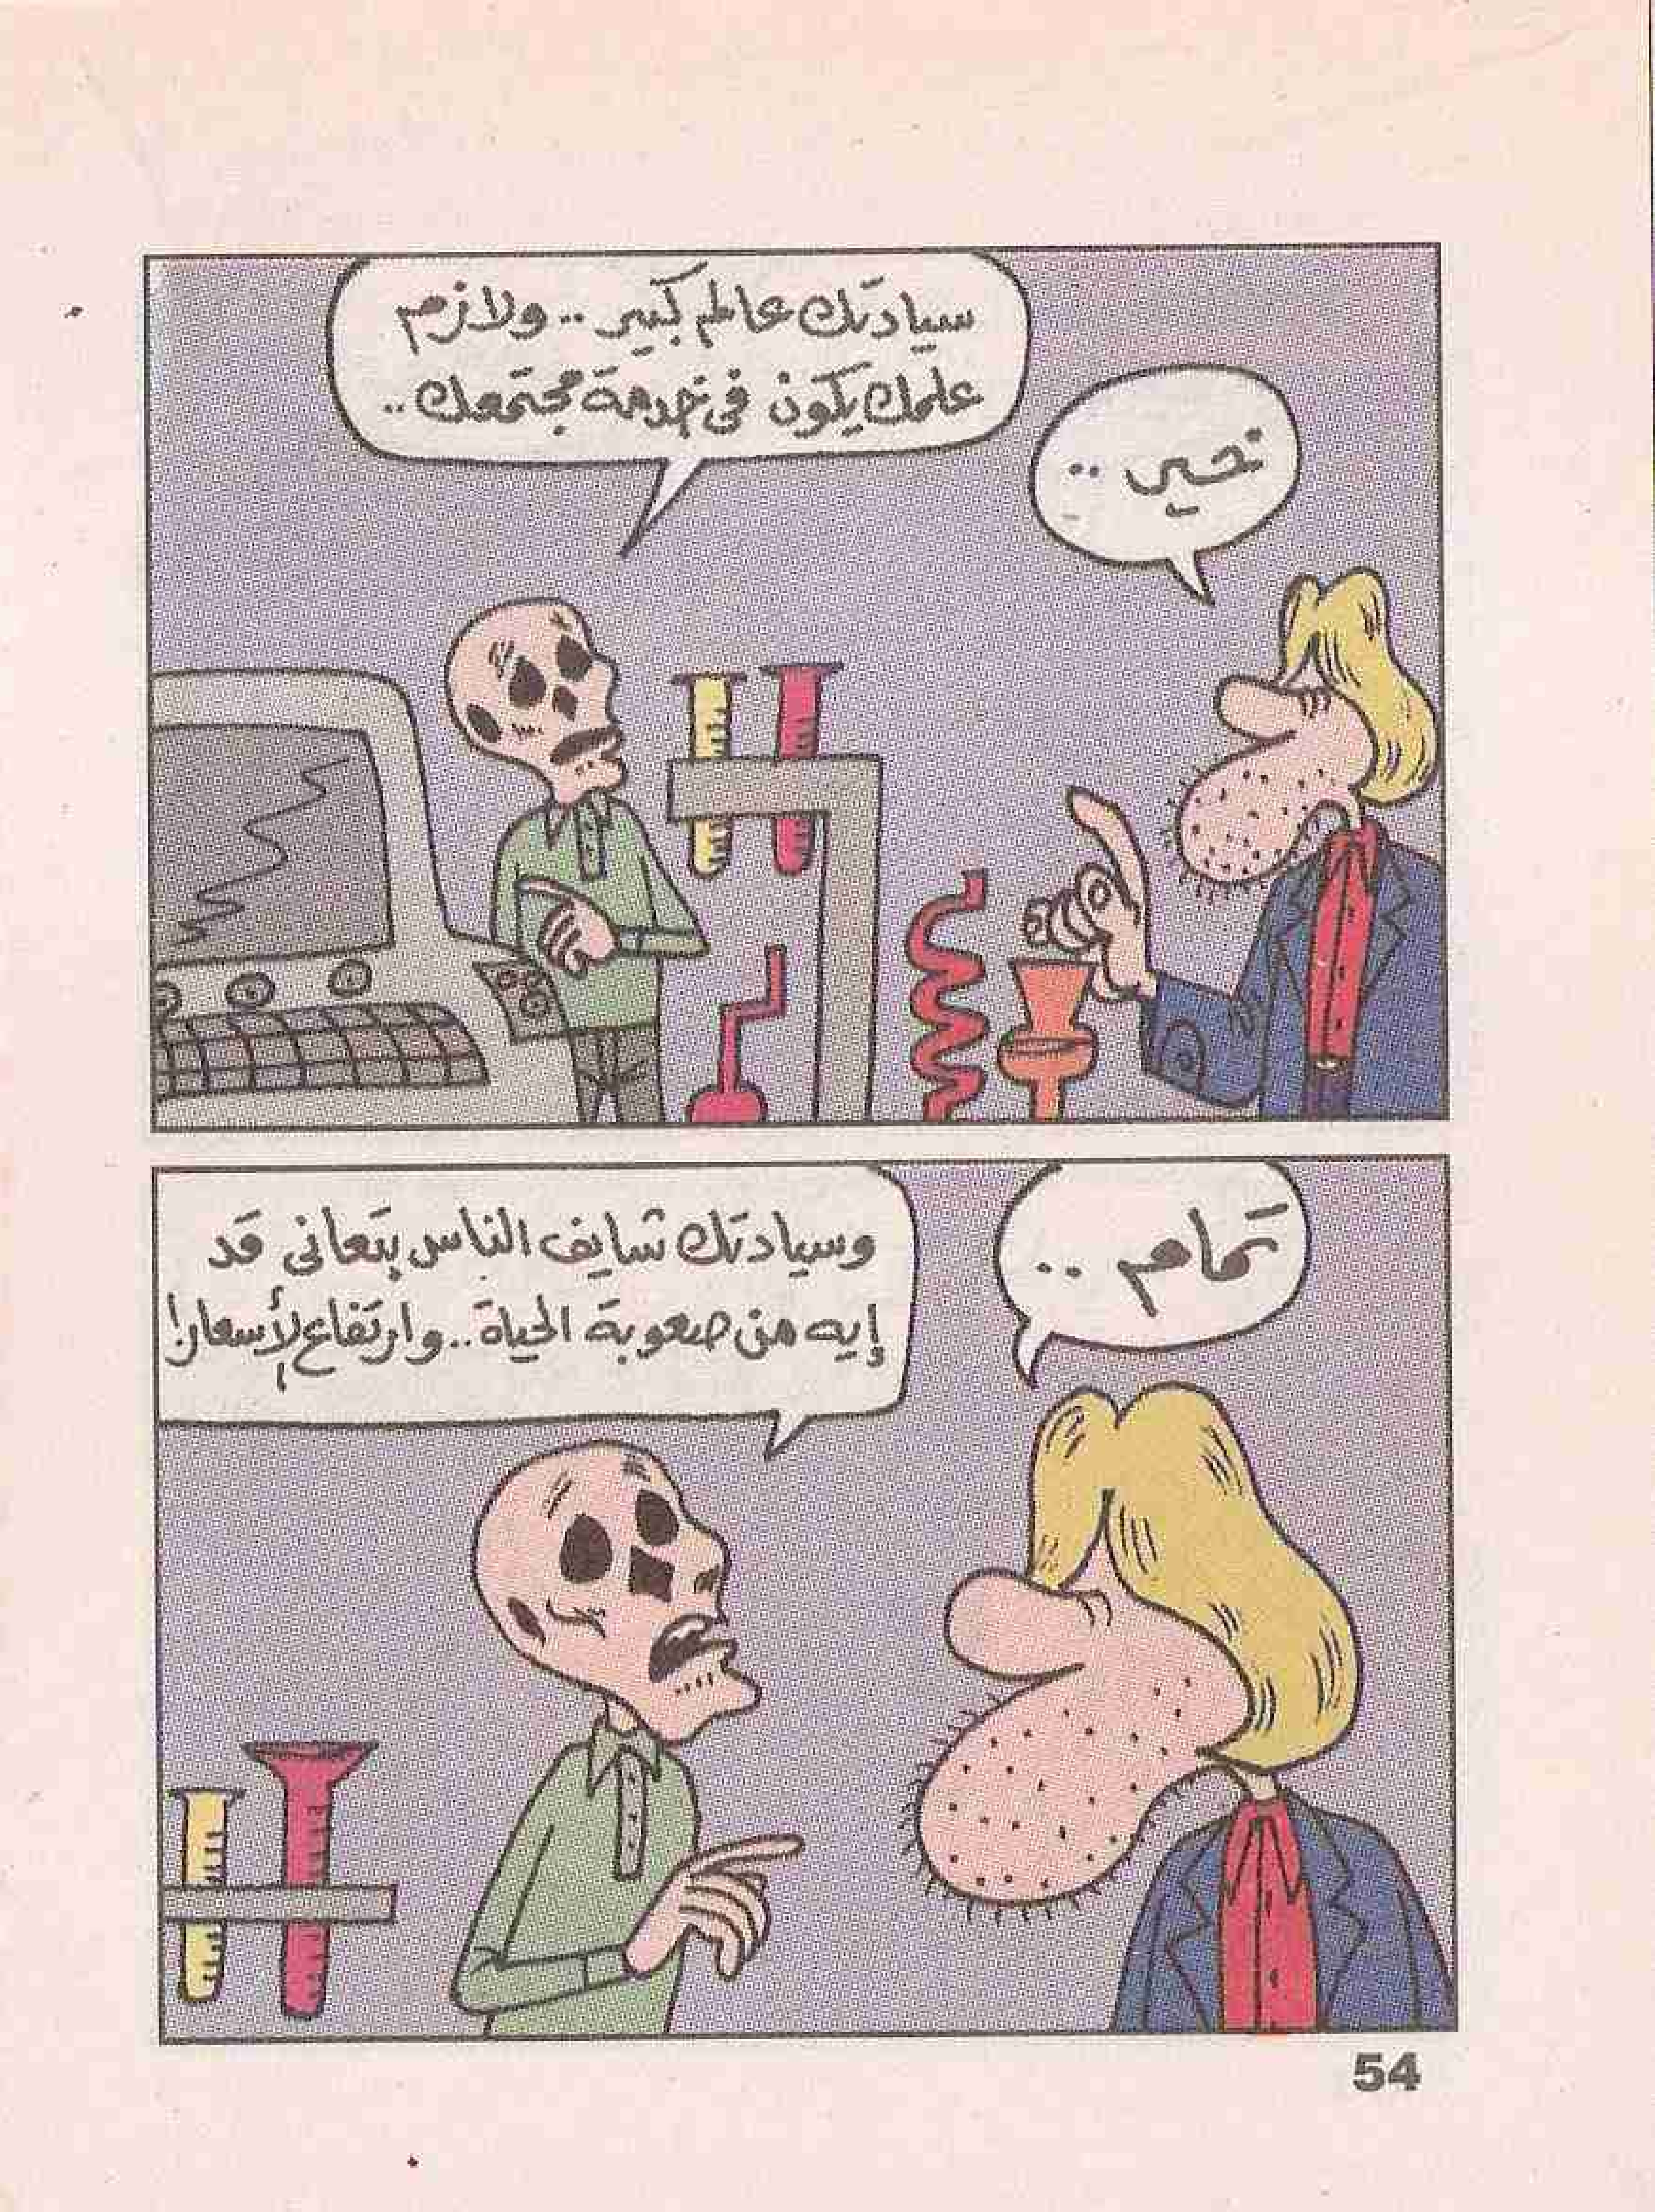 خير ..
سيادتك عالم كبير .. ولازم
علمك يكون فى خدمة مجتمعك ..
تمام ..
وسيادتك شايف الناس بتعانى قد
إيه من صعوبة الحياة .. وارتفاع الأسعار!
54